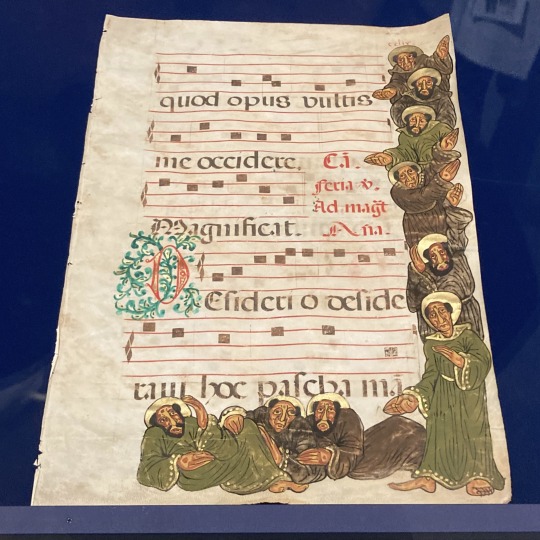 quod opus vultis
me occidere. Cā.
feria v.
Ad magt̄
Magnificat. Aña.
DEsideri o deside
raui hoc pascha mā